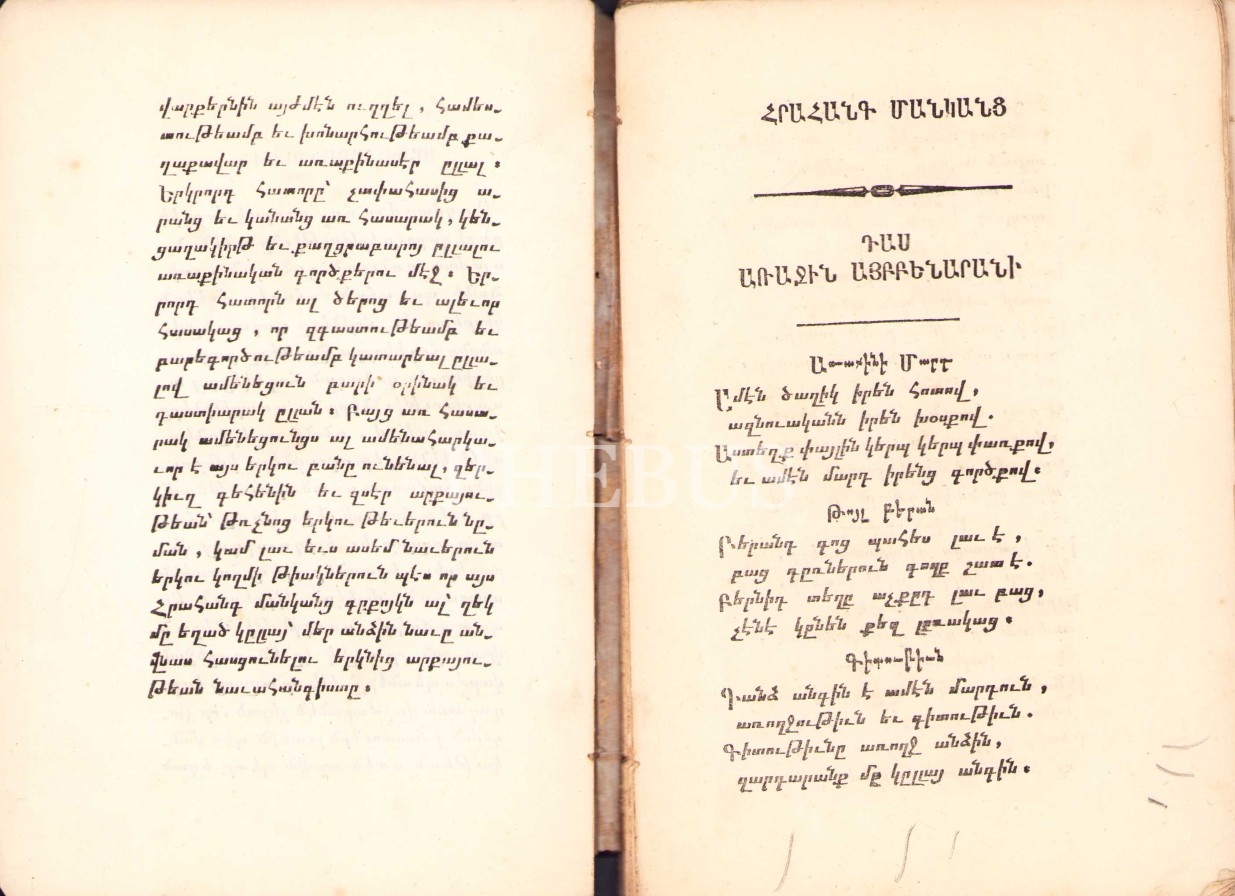 վարքերնին այժմէն ուղղել, համես-
տութեամբ եւ խոնարհութեամբ քա-
ղաքավար եւ առաքինասէր ըլլալ։
Երկրորդ հատորը՝ չափահասից ա-
րանց եւ կանանց առ հասարակ, կեն-
ցաղակիրթ եւ քաղցրաբարոյ ըլլալու
առաքինական գործքերու մէջ։ Եր-
րորդ հատորն ալ ծերոց եւ ալեւոր
հասակաց, որ զգաստութեամբ եւ
բարեգործութեամբ կատարեալ ըլլա-
լով ամենեցուն բարի օրինակ եւ
դաստիարակ ըլլան։ Բայց առ հասա-
րակ ամենեցունցս ալ ամենահարկա-
ւոր է այս երկու բանը ունենալ, զեր-
կիւղ գեհենին եւ զսէր արքայու-
թեան՝ թռչնոց երկու թեւերուն նը-
ման, կամ լաւ եւս ասեմ նաւերուն
երկու կողմի թիակներուն պէս որ այս
Հրահանգ մանկանց գրքոյկն ալ՝ ղեկ
մը եղած կըլլայ՝ մեր անձին նաւը ան-
վնաս հասցունելու երկնից արքայու-
թեան նաւահանգիստը։
ՀՐԱՀԱՆԳ ՄԱՆԿԱՆՑ
ԴԱՍ
ԱՌԱՋԻՆ ԱՅԲԲԵՆԱՐԱՆԻ
Առաքինի Մարդ
Ամէն ծաղիկ իրեն հոտով,
ազնուականն իրեն խօսքով.
Աստեղք փայլին կերպ կերպ փառքով,
եւ ամէն մարդ իրենց գործքով։
Թոյլ բերան
Բերանդ գոց պահես լաւ է,
բաց դըռներուն գողը շատ է.
Բերնիդ տեղը աչքըդ լաւ բաց,
չէնէ կընեն քեզ լըռակաց։
Գիտութիւն
Գանձ անգին է ամէն մարդուն,
առողջութիւն եւ գիտութիւն.
Գիտութիւնը առողջ անձին,
զարդարանք մը կըլլայ անգին։
HEBUS